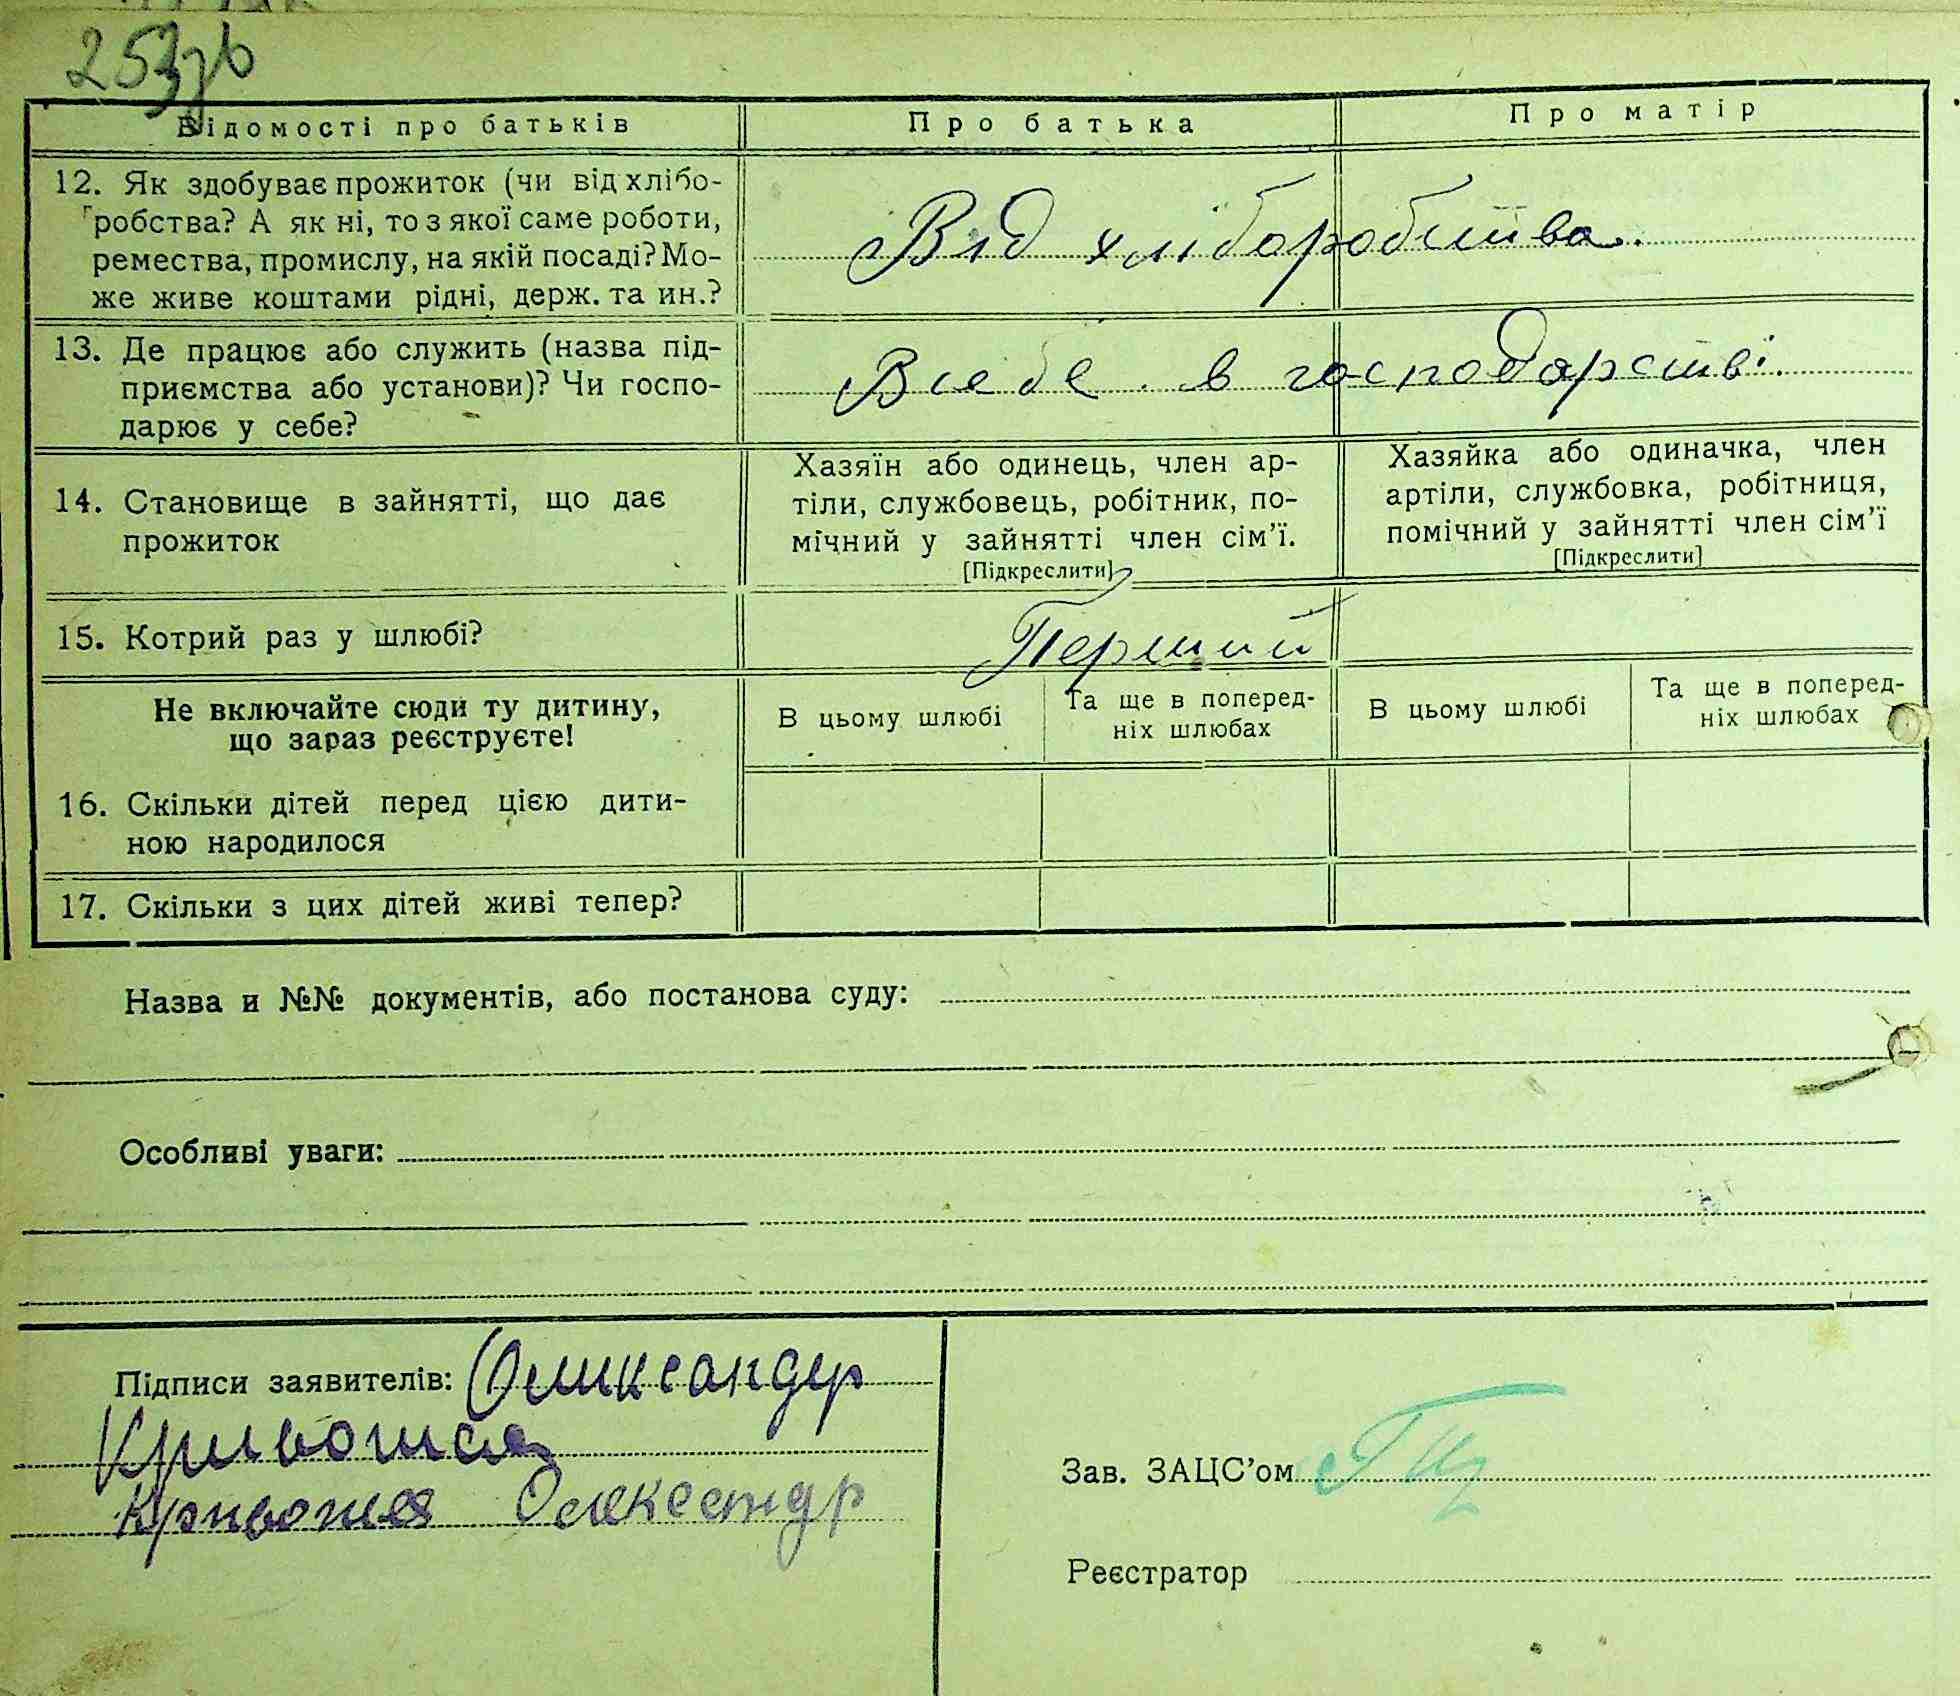 253зв
Відомості про батьків Про батька Про матір
12. Як здобуває прожиток (чи від хлібо-
робства? А як ні, то з якої саме роботи,
ремества, промислу, на якій посаді? Мо-
же живе коштами рідні, держ. та ин.?
Від хліборобства.
13. Де працює або служить (назва під-
приємства або установи)? Чи госпо-
дарює у себе?
В себе в господарстві.
14. Становище в зайнятті, що дає
прожиток
Хазяїн або одинець, член ар-
тіли, службовець, робітник, по-
мічний у зайнятті член сім’ї.
[Підкреслити]
Хазяйка або одиначка, член
артіли, службовка, робітниця,
помічний у зайнятті член сім’ї
[Підкреслити]
15. Котрий раз у шлюбі? Перший
Не включайте сюди ту дитину,
що зараз реєструєте!
В цьому шлюбі
Та ще в поперед-
ніх шлюбах
В цьому шлюбі
Та ще в поперед-
ніх шлюбах
16. Скільки дітей перед цією дити-
ною народилося
17. Скільки з цих дітей живі тепер?
Назва и №№ документів, або постанова суду:
Особливі уваги:
Підписи заявителів: Олександр
Кривошея
Кривошея Олександр
Зав. ЗАЦС’ом
Реєстратор